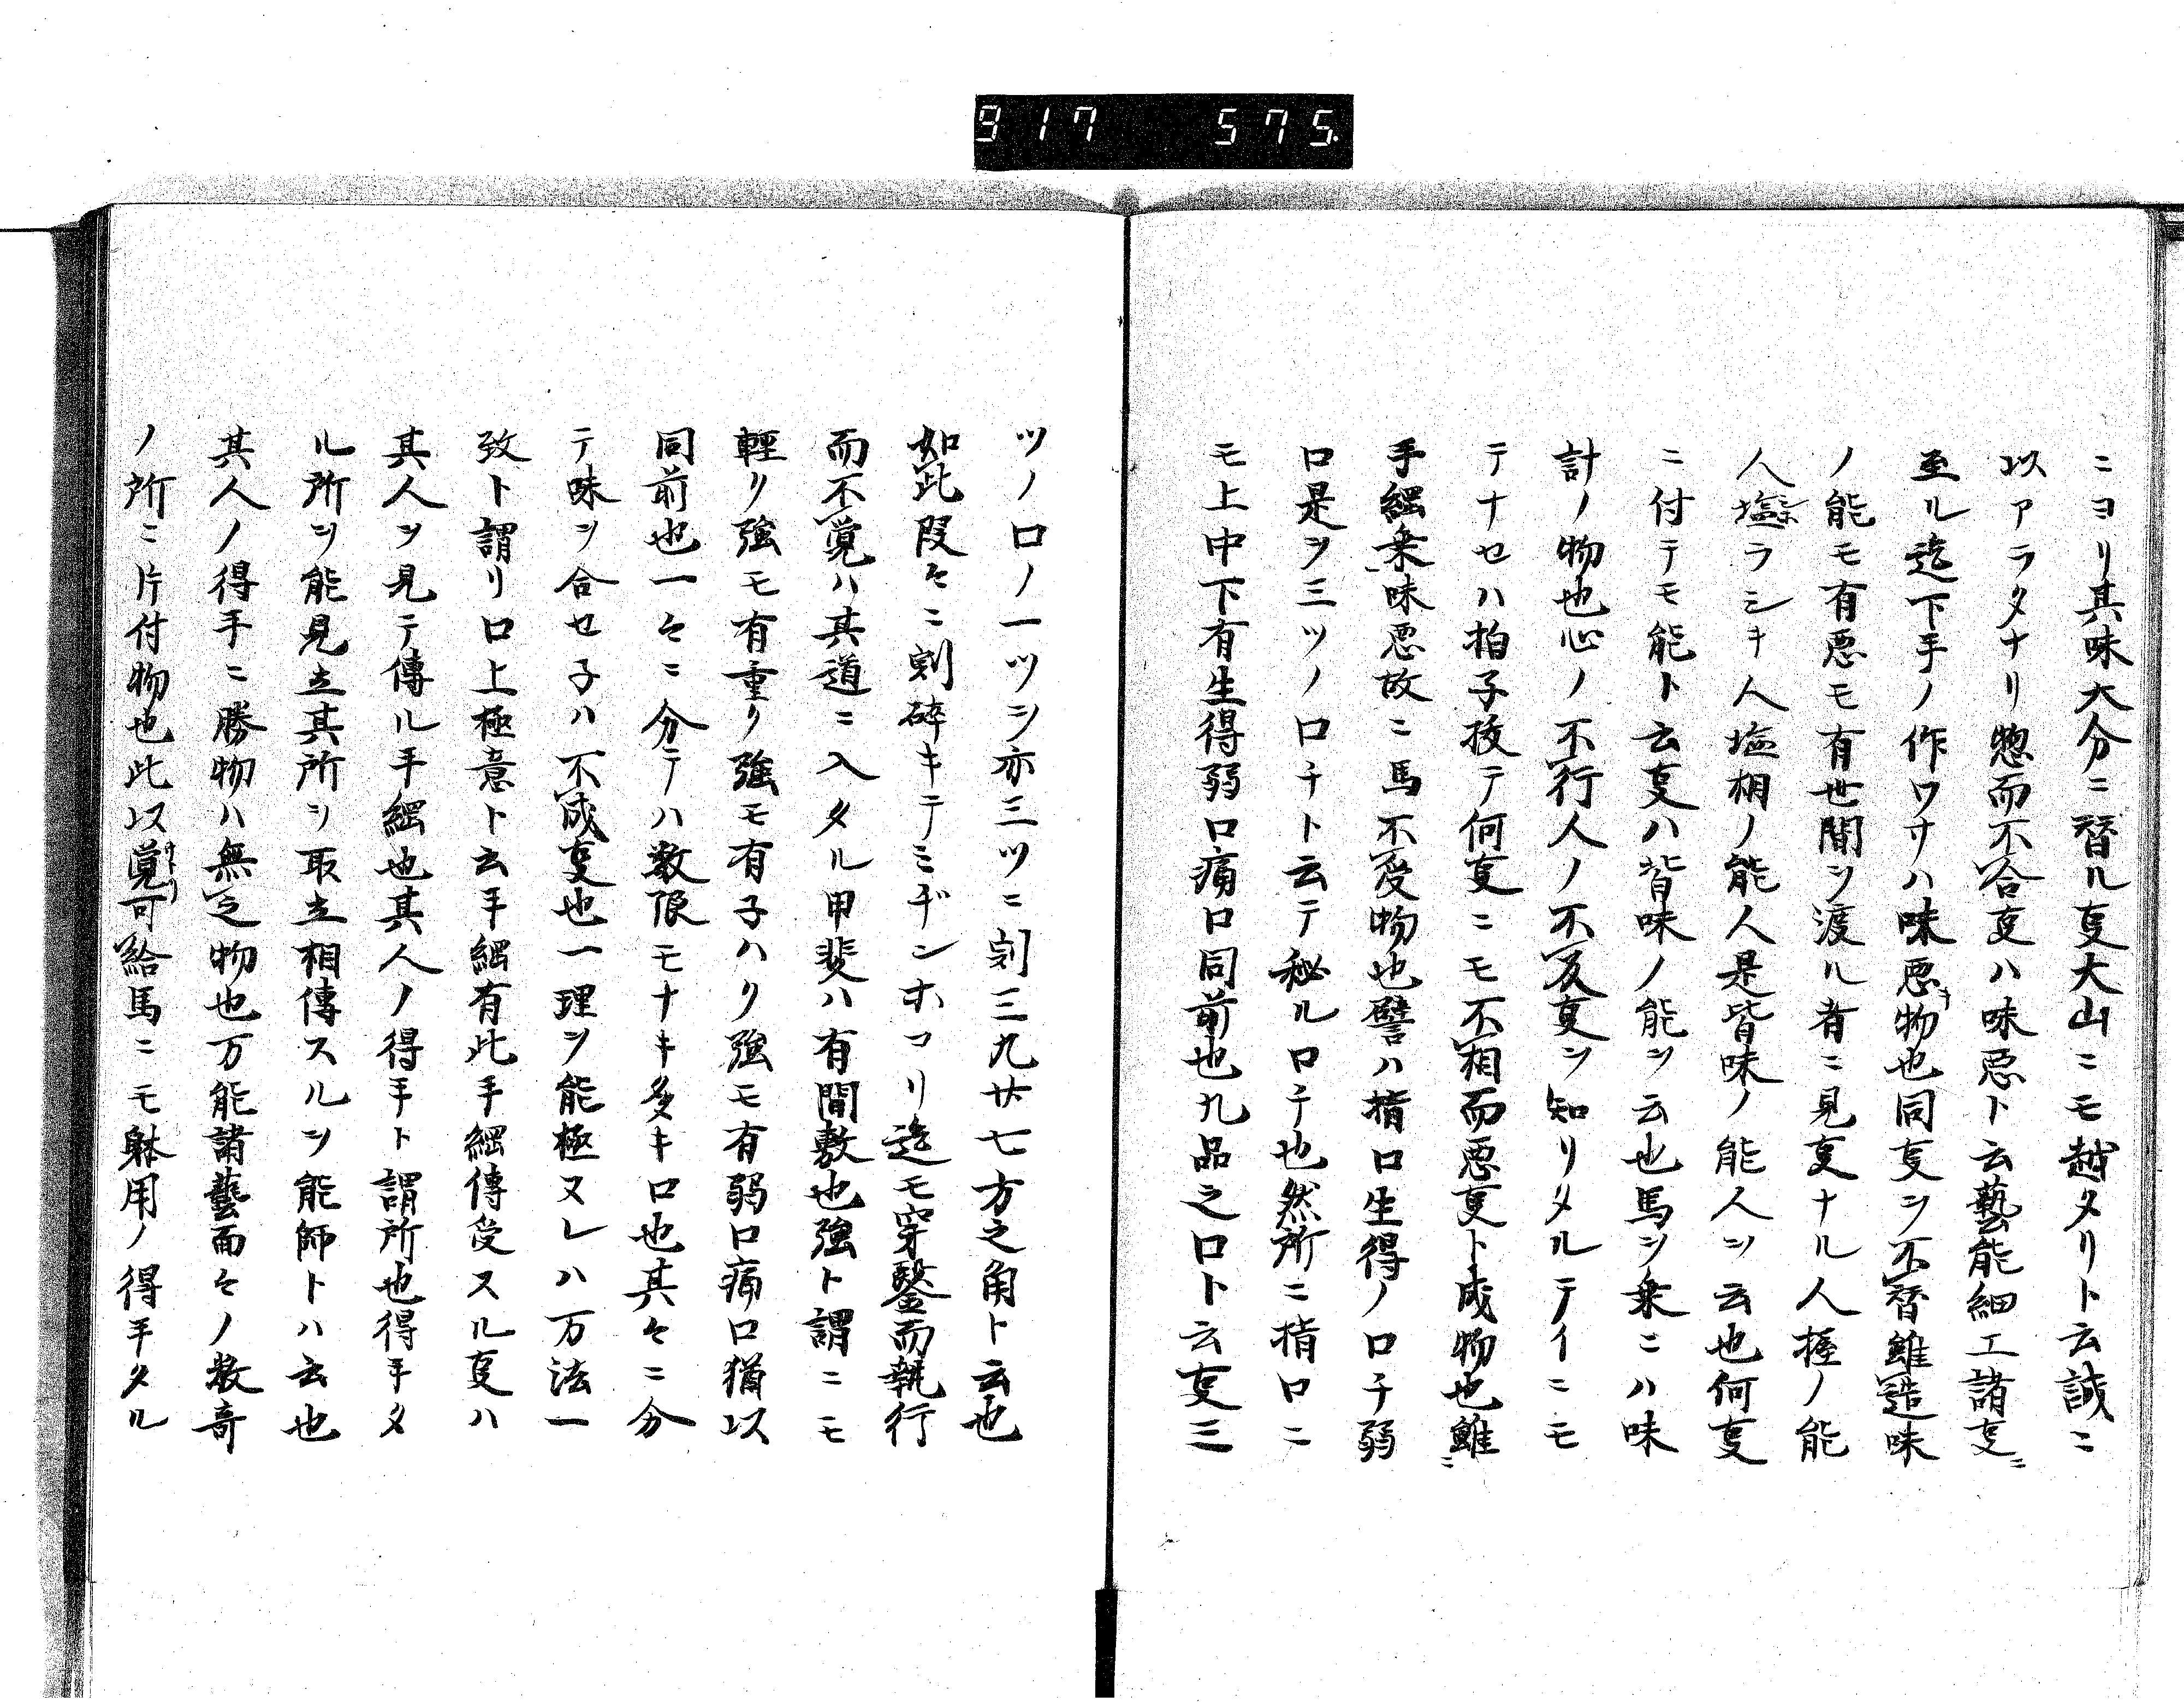 917 575.
ニヨリ其味大分ニ替ル叓大山ニモ越タリト云誠ニ
以アラタナリ惣而不合叓ハ味悪ト云藝能細工諸叓ニ
至ル迄下手ノ作ワサハ味悪物也同叓ヲ不替雖造味
ノ能モ有悪モ有世間ヲ渡ル者ニ見叓ナル人握ノ能
人塩ラシキ人塩梅ノ能人是皆味ノ能人ヲ云也何叓
ニ付テモ能ト云叓ハ皆味ノ能ヲ云也馬ヲ乗ニハ味
計ノ物也心ノ不行人ノ不及叓ヲ知リタルテイニモ
テナセハ拍子抜テ何叓ニモ不相而悪叓ト成物也雖ニ
手綱乗味悪故ニ馬不受物也譬ハ指口生得ノロチ弱
口是ヲ三ツノロチト云テ秘ルロチ也然所ニ指口ニ
モ上中下有生得弱口痛口同前也九品之口ト云叓三
ツノ口ノ一ツヲ亦三ツニ割三九廿七方之角ト云也
如此段々ニ割砕キテミヂンホコリ迄モ穿鑿而執行
而不覚ハ其道ニ入タル甲斐ハ有間敷也強ト謂ニモ
軽リ強モ有重ク強モ有子ハリ強モ有弱口痛口猶以
同前也一々ニ分テハ数限モナキ多キ口也其々ニ分
テ味ヲ合セ子ハ不成叓也一理ヲ能極ヌレハ万法一
致ト謂リ口上極意ト云手綱有此手綱傳受スル叓ハ
其人ヲ見テ傳ル手綱也其人ノ得手ト謂所也得手タ
ル所ヲ能見立其所ヲ取立相傳スルヲ能師トハ云也
其人ノ得手ニ勝物ハ無之物也万能諸藝面々ノ数奇
ノ所ニ片付物也此以覚可給馬ニモ躰用ノ得手タル